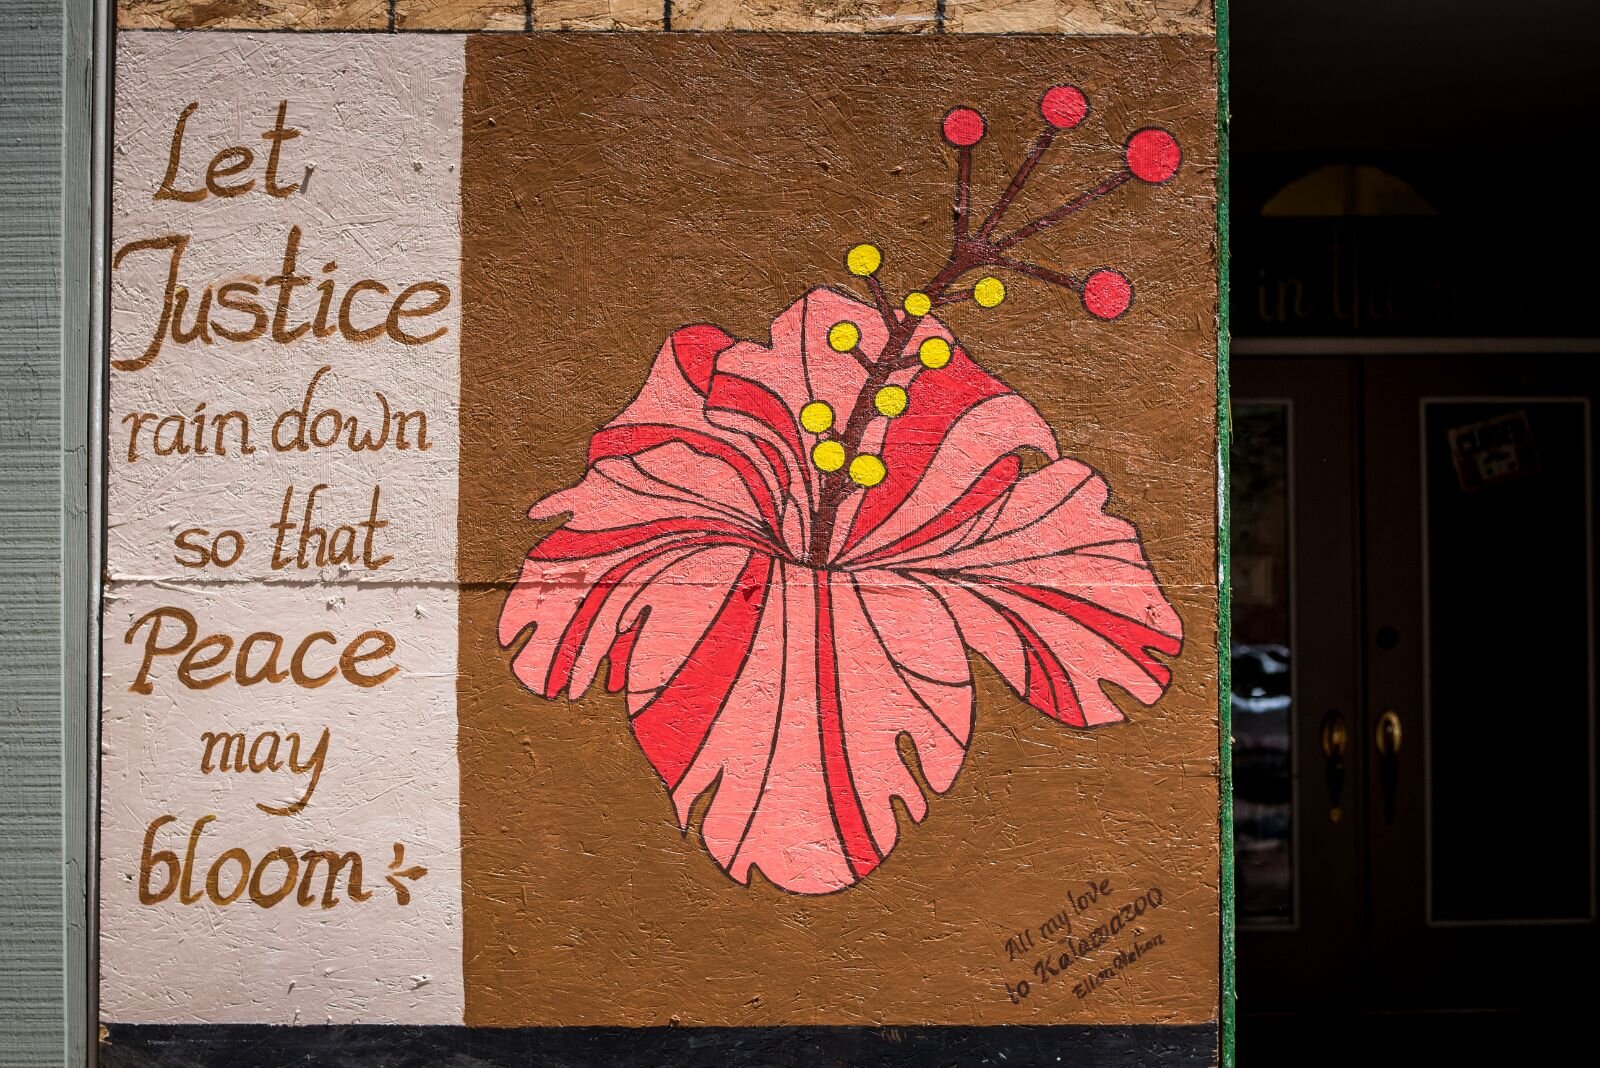 Let
Justice
rain down
so that
Peace
may
bloom
All my love
to Kalamazoo
Ellen Nelson
in